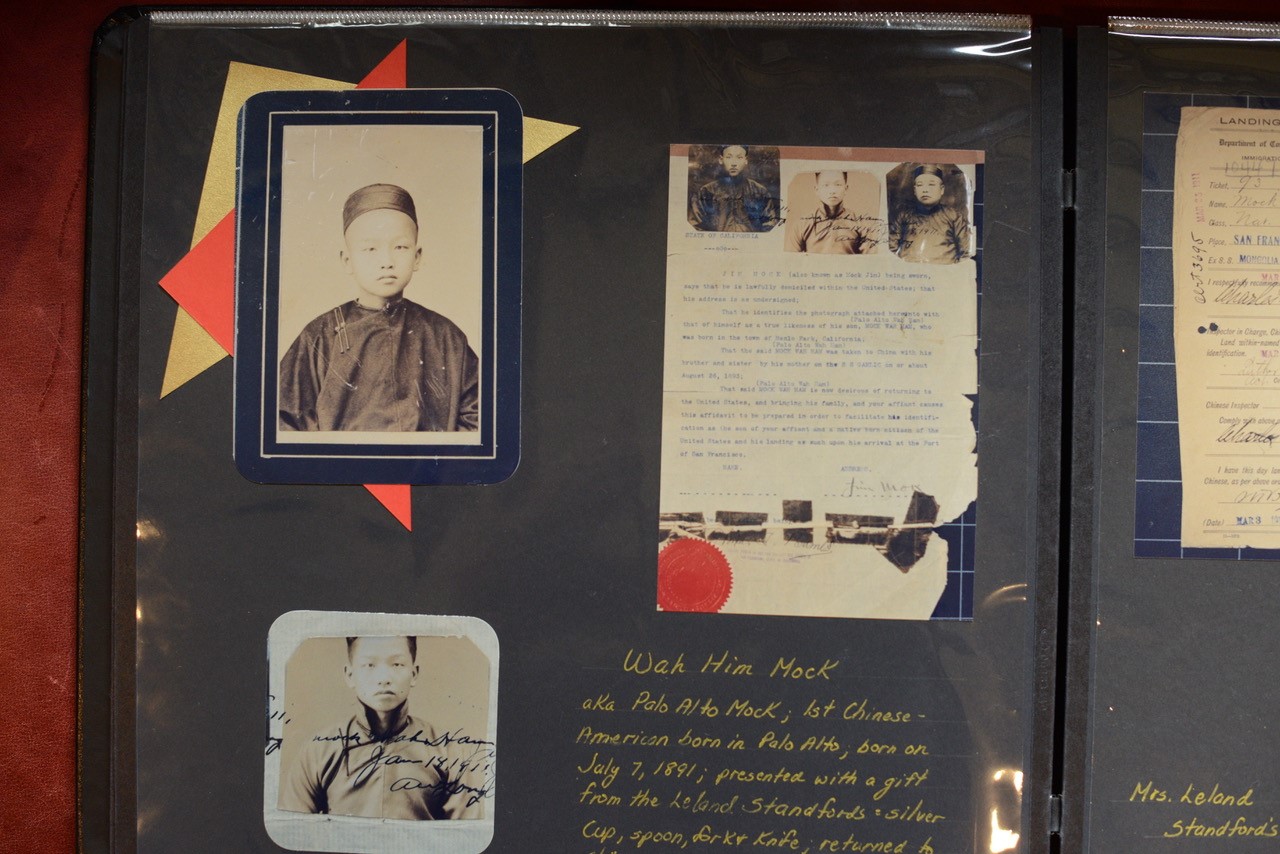 STATE OF CALIFORNIA
JIM MOCK (also known as Mock Jim) being sworn,
says that he is lawfully domiciled within the United States; that
his address is as undersigned;
That he identifies the photograph attached hereunto with
(Palo Alto Wah Ham)
that of himself as a true likeness of his son, MOCK WAH HAM, who
was born in the town of Menlo Park, California;
(Palo Alto Wah Ham)
That the said MOCK WAH HAM was taken to China with his
brother and sister by his mother on the S S GAELIC on or about
August
(Palo Alto Wah Ham)
That said MOCK WAH HAM is now desirous of returning to
the United States, and bringing his family, and your affiant causes
this affidavit to be prepared in order to facilitate his identifi-
cation as the son of your affiant and a native born citizen of the
United States and his landing as such upon his arrival at the Port
of San Francisco.
NAME. ADDRESS.
Jim Mock
mock Wah Ham
Jan 14 1911
Wah Him Mock
aka Palo Alto Mock; 1st Chinese-
American born in Palo Alto; born on
July 7, 1891; presented with a gift
from the Leland Standfords = silver
Cup, spoon, fork & Knife; returned to
LANDING
Department of Co
IMMIGRATIO
Ticket, 93
Name, Mock
Class, Nat
Place, SAN FRAN
Ex S. S. MONGOLIA
MAR
I respectfully recomme
Inspector in Charge, Ch
Land within-named
identification.
Chinese Inspector
Comply with above
I have this day land
Chinese, as per above or
(Date) MAR 3
Mrs. Leland
Standford's